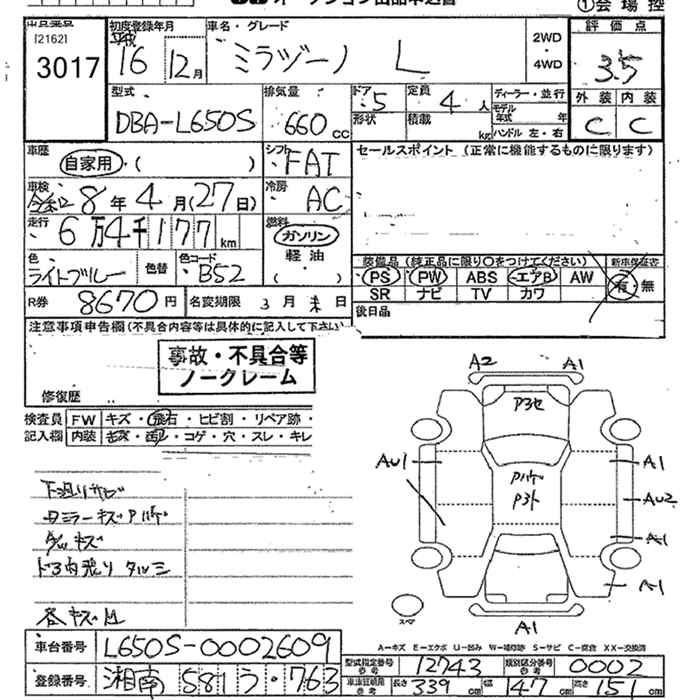 ①会場控
出品番号
[2162]
3017
初度登録年月
平成
16年 12月
車名・グレード
ミラジーノ L
2WD
・
4WD
評価点
3.5
外装 内装
C C
型式
DBA-L650S
排気量
660cc
ドア
5
定員
4人
形状
積載
kg
ディーラー・並行
モデル年式 年
ハンドル 左・右
車歴
自家用・( )
シフト
FAT
セールスポイント (正常に機能するものに限ります)
車検
令和 8年 4月(27日)
冷房
AC
走行
6万4千177km
燃料
ガソリン
軽油
・( )
色
ライトブルー
色替
色コード
B52
装備品 (純正品に限り○をつけてください)
新車保証書
PS PW ABS エアB AW
有・無
SR ナビ TV カワ
R券 8670円
名変期限 3月末日
後日品
注意事項申告欄(不具合内容等は具体的に記入して下さい)
事故・不具合等
ノークレーム
修復歴
検査員
記入欄
FW キズ・飛石・ヒビ割・リペア跡・
内装 キズ・汚れ・コゲ・穴・スレ・キレ
下廻りサビ
ミラーキズ
キズ
A2 A1
P3セ
AU1
A1
P3ト
AU2
A1
A1
スペア
A1
A-キズ E-エクボ U-凹み W-補修跡 S-サビ C-腐食 XX-交換済
車台番号 L650S-0002609
型式指定番号 参考 12743
類別区分番号 参考 0002
登録番号 湘南 581 う・763
車検証明用 参考 長さ339cm 幅147cm 高さ151cm